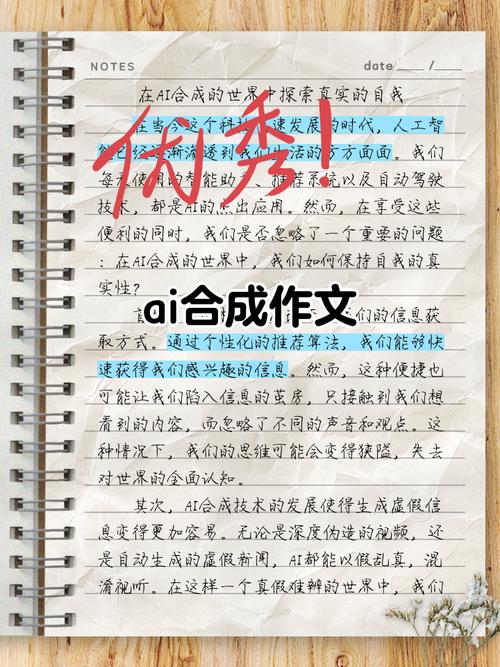 NOTES
date ___ / ___
在AI合成的世界中探索真实的自我
优秀!
在当今这个科技 速发展的时代,人工智
能已经逐渐渗透到我们生活的方方面面。我们
每天使用的智能助 、推荐系统以及自动驾驶
技术,都是AI的杰出应用。然而,在享受这些
便利的同时,我们是否忽略了一个重要的问题
:在AI合成的世界中,我们如何保持自我的真
实性?
ai合成作文
们的信息获
取方式。通过个性化的推荐算法,我们能够快
速获得我们感兴趣的信息。然而,这种便捷也
可能让我们陷入信息的茧房,只接触到我们想
看到的内容,而忽略了不同的声音和观点。这
种情况下,我们的思维可能会变得狭隘,失去
对世界的全面认知。
其次,AI合成技术的发展使得生成虚假信
息变得更加容易。无论是深度伪造的视频,还
是自动生成的虚假新闻,AI都能以假乱真,混
淆视听。在这样一个真假难辨的世界中,我们